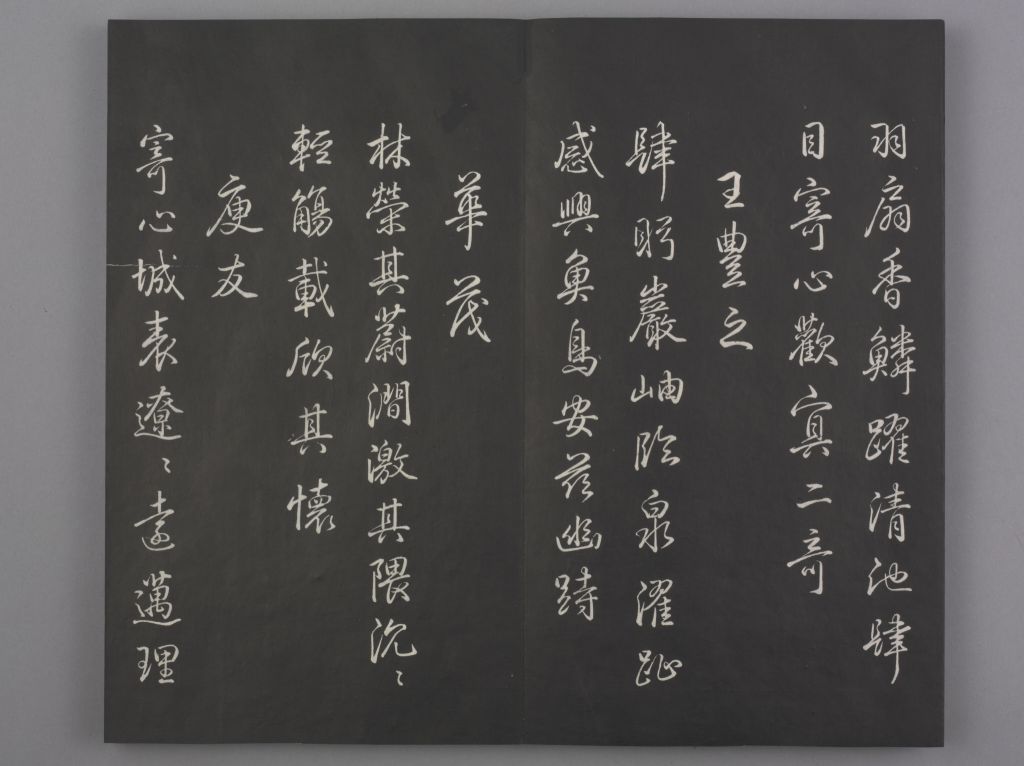 羽扇香鱗躍清池肆
目寄心歡冥二奇
王豊之
肆眄巖岫臨泉濯趾
感興魚鳥安茲幽跱
華茂
林榮其蔚澗激其隈汎〻
輕觴載欣其懷
庾友
寄心城表遼〻遠邁理